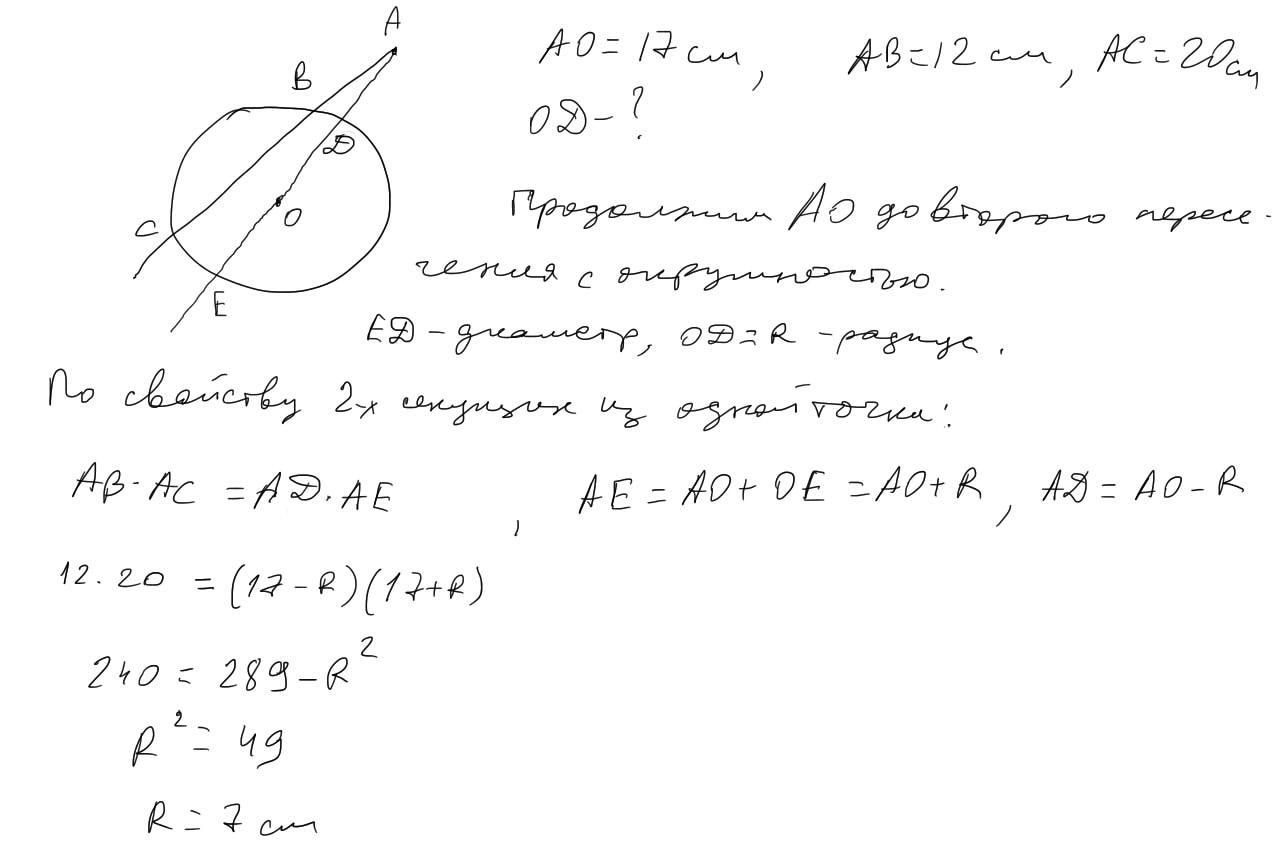 A
B
D
O
C
E
AO = 17 см, AB = 12 см, AC = 20 см
OD - ?
Продолжим AO до второго пересе-
чения с окружностью.
ED - диаметр, OD = R - радиус.
По свойству 2-х секущих из одной точки:
AB · AC = AD · AE, AE = AO + OE = AO + R, AD = AO - R
12 · 20 = (17 - R)(17 + R)
240 = 289 - R²
R² = 49
R = 7 см